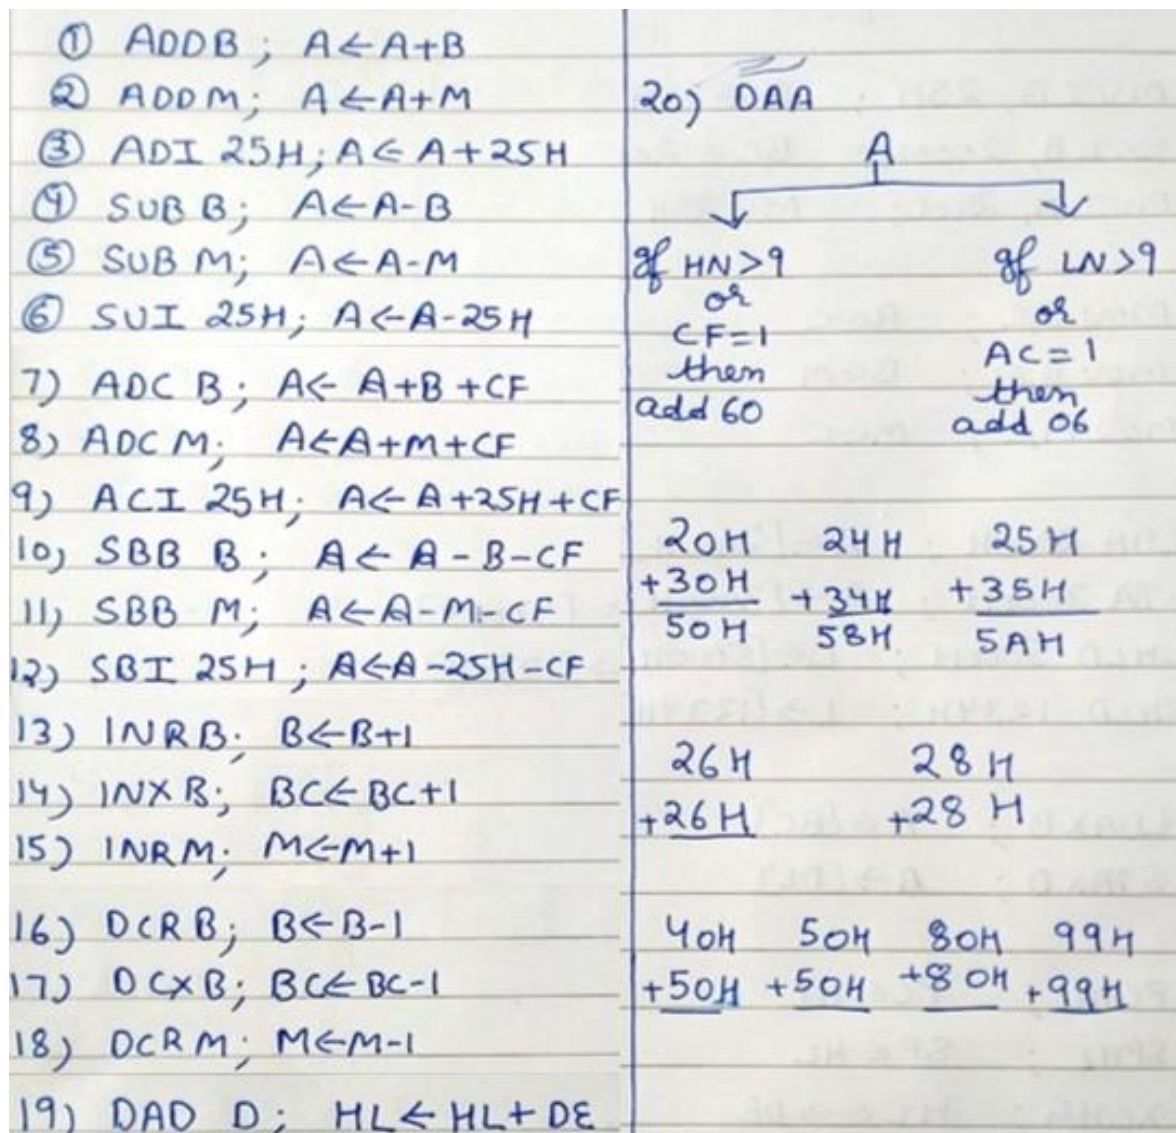 ① ADD B; A←A+B
② ADD M; A←A+M
③ ADI 25H; A←A+25H
④ SUB B; A←A-B
⑤ SUB M; A←A-M
⑥ SUI 25H; A←A-25H
7) ADC B; A←A+B+CF
8) ADC M; A←A+M+CF
9) ACI 25H; A←A+25H+CF
10) SBB B; A←A-B-CF
11) SBB M; A←A-M-CF
12) SBI 25H; A←A-25H-CF
13) INR B; B←B+1
14) INX B; BC←BC+1
15) INR M; M←M+1
16) DCR B; B←B-1
17) DCX B; BC←BC-1
18) DCR M; M←M-1
19) DAD D; HL←HL+DE
20) DAA
A
If HN>9
or
CF=1
then
add 60
If LN>9
or
AC=1
then
add 06
20H 24H 25H
+30H +34H +35H
50H 58H 5AH
26H 28H
+26H +28H
40H 50H 80H 99H
+50H +50H +80H +99H